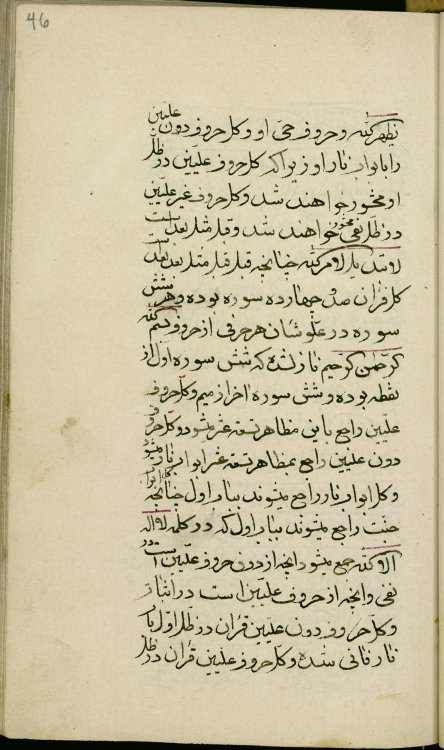 46
یظهره الله و حروف حی او و کل حروف دون علیین
را بابواب نار او زیرا که کل حروف علیین در ظل
او محشور خواهند شد و کل حروف غیر علیین
در ظل نفی محشور خواهند شد و قبل مثل بعد است
لا تبدیل لامر الله چنانچه قبل قبل مثل بعد بعد است
کل قرآن صد و چهارده سوره بوده و هر شش
سوره در علو شان هر حرفی از حروف بسم الله
الرحمن الرحیم نازل شده که شش سوره اول از
نقطه بوده و شش سوره اخر از میم و کل حروف
علیین راجع باین مظاهر تسعة عشر میشود و کل حروف
دون علیین راجع بمظاهر تسعة عشر ابواب نار میشود
و کل ابواب نار راجع میشوند بباب اول چنانچه کل ابواب
جنت راجع میشوند بباب اول که در کلمه لا اله
الا الله جمع میشود انچه از دون حروف علیین است در
نفی و انچه از حروف علیین است در اثبات
و کل حروف دون علیین قرآن در ظل اول باب
نار فانی شده و کل حروف علیین قرآن در ظل